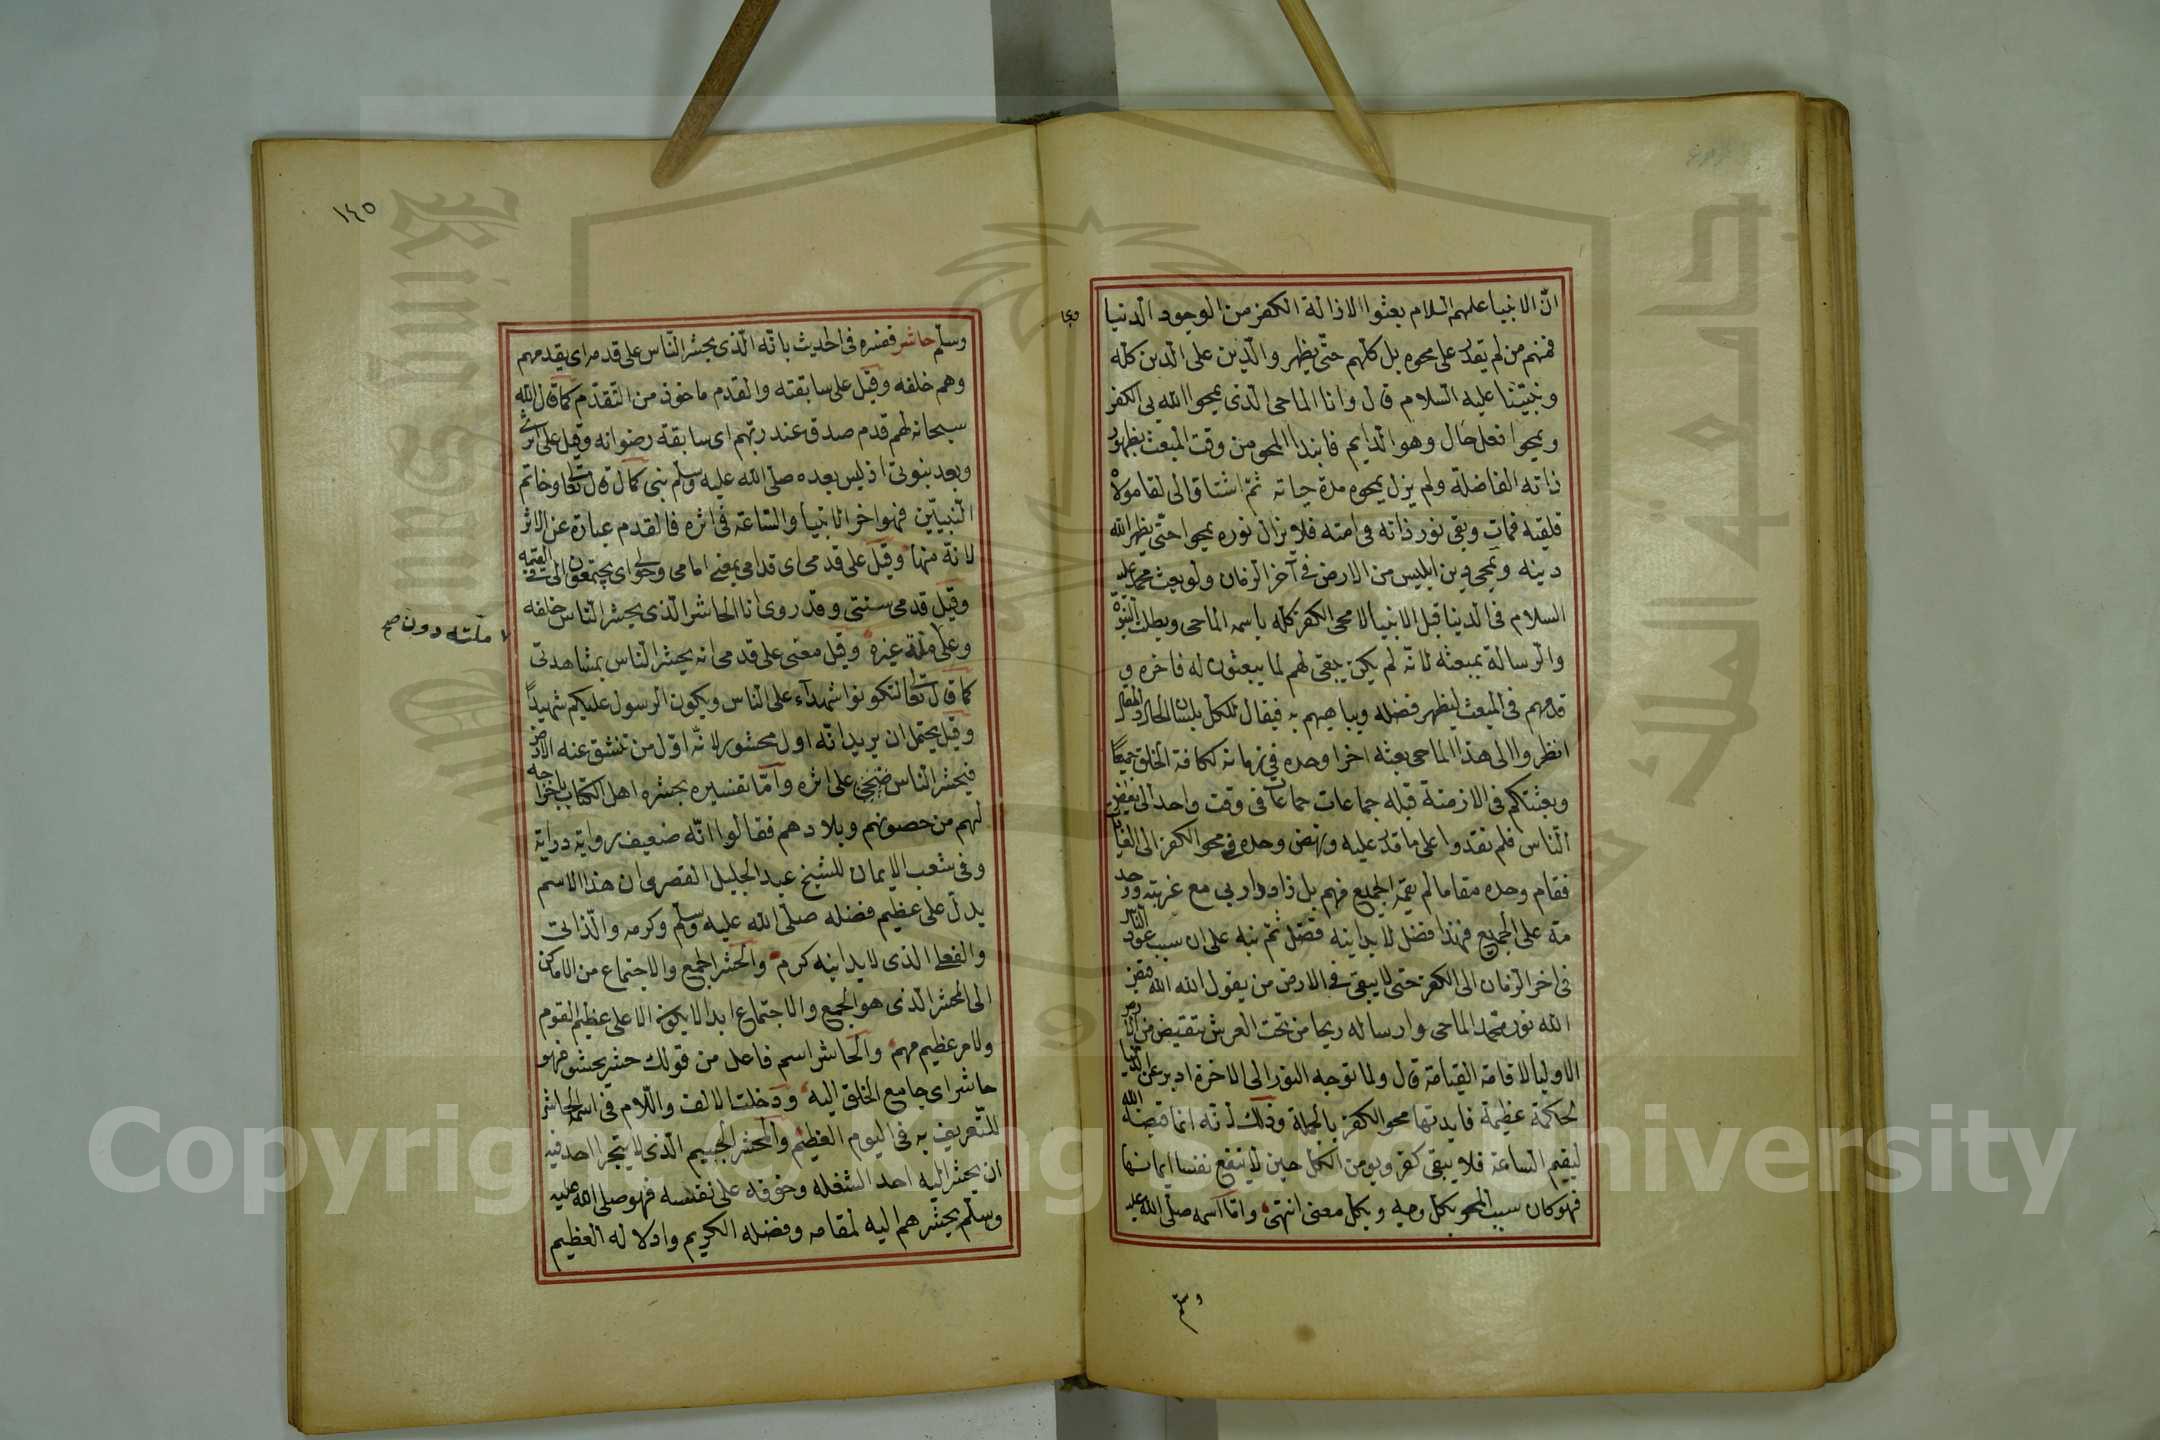 انّ الانبيا عليهم السلام بعثوا الازالة الكفر من الوجود الدنيا
فمنهم من لم يقدر على محوه بل كلهم حتّى يظهر والدّين على الدين كله
ونبيّنا عليه السلام قال وانا الماحى الذى يمحوا الله بى الكفر
ويمحوا فعل حال وهو الدايم فابتدا المحو من وقت المبعث بظهور
ذاته الفاضلة ولم يزل يمحوه مدة حياته ثمّ اشتاق الى لقا مولاه
فلقيته فمات وبقى نور ذاته فى امته فلا يزال نوره يمحوا حتّى يظهر الله
دينه ويمحى دين ابليس من الارض فى آخر الزمان ولو بعث محمد عليه
السلام فى الدنيا قبل الانبيا لامحى الكفر كله باسمه الماحى وبطلت النبوّة
والرسالة بمبعثه لانّه لم يكن يبقى لهم لما يبعثون له فاخره و
قدمهم فى المبعث ليظهر فضله ويباهيهم به فيقال للكل بلسان الحال والمقال
انظروا الى هذا الماحى بعثه اخرا وحده فى زمانه لكافة الخلق جميعًا
وبعثتكم فى الازمنة قبله جماعات جماعات فى وقت واحد الى بعض
الناس فلم تقدروا على ما قدر عليه ونهض وحده فى محو الكفر الى الغاية
فقام وحده مقاما لم يقمه الجميع فهم بل زاد وارٮى مع غربته وحد
مة على الجميع فهذا فضل لا يدانيه فضل ثم نبه على ان سبب عود الناس
فى اخر الزمان الى الكفر حتى لا يبقى فى الارض من يقول الله الله قبض
الله نور محمد الماحى وارساله ريحا من تحت العرش تقبض من الارض
الاوليا لاقامة القيامة قال ولما توجه النور الى الاخرة ادبر عن الدنيا
لحكمة عظيمة فايدتها محو الكفر بالجملة وذلك لانه انما قبضه الله
ليقيم الساعة فلا يبقى كفر ويومن الكل حين لا ينفع نفسا ايمانها
فهو كان سبب المحو بكل وجه وبكل معنى انتهى وامّا اسمه صلى الله عليه
وسلّم
١٤٥
وسلّم حاشر ففسره فى الحديث بانّه الّذى يحشر النّاس على قدمه اى يقدمهم
وهم خلفه وقيل على سابقته والقدم ماخوذ من التقدّم كما قال الله
سبحانه لهم قدم صدق عند ربّهم اى سابقة رضوانه وقيل على اثرى
وبعد نبوتى اذ ليس بعده صلى الله عليه وسلّم نبى كما قال تعالى وخاتم
النبيّين فهو اخر الانبيا والساعة فى اثره فالقدم عبارة عن الاثر
لانّه منها وقيل على قدمى اى قدامى بمعنى امامى وحولى اى يجتمعون الى فى القيمة
وقيل قدمى سنتى وقد روى انا الحاشر الذى يحشر الناس خلفه
وعلى ملة غيره وقيل معنى على قدمى انه يحشر الناس بمشاهدتى
ملّته دون صح
كما قال تعالى لتكونوا شهدآء على الناس ويكون الرسول عليكم شهيدًا
وقيل يحتمل ان يريد انّه اول محشور لانّه اوّل من تنشق عنه الارض
فيحشر الناس على اثره وامّا تفسيره بحشره اهل الكتاب باخراجه
لهم من حصونهم وبلادهم فقالوا انّه ضعيف رواية دراية
وفى شعب الايمان للشيخ عبد الجليل القصرى ان هذا الاسم
يدلّ على عظيم فضله صلّى الله عليه وسلّم وكرمه والّذاتى
والفعلى الذى لا يدانيه كرم والحشر الجمع والاجتماع من الاماكن
الى المحشر الذى هو الجمع والاجتماع ابدا لا يكون الا على عظيم القوم
ولامر عظيم مهم والحاشر اسم فاعل من قولك حشر يحشر فهو
حاشر اى جامع الخلق اليه ودخلت الالف واللام فى اسمه الحاشر
للتعريف به فى اليوم العظيم والمحشر الجسيم الّذى لا يتجرا احد فيه
ان يحشر اليه احد لشغله وخوفه على نفسه فهو صلى الله عليه
وسلّم يحشرهم اليه لمقامه وفضله الكريم وادلاله العظيم
Copyright © King Saud University